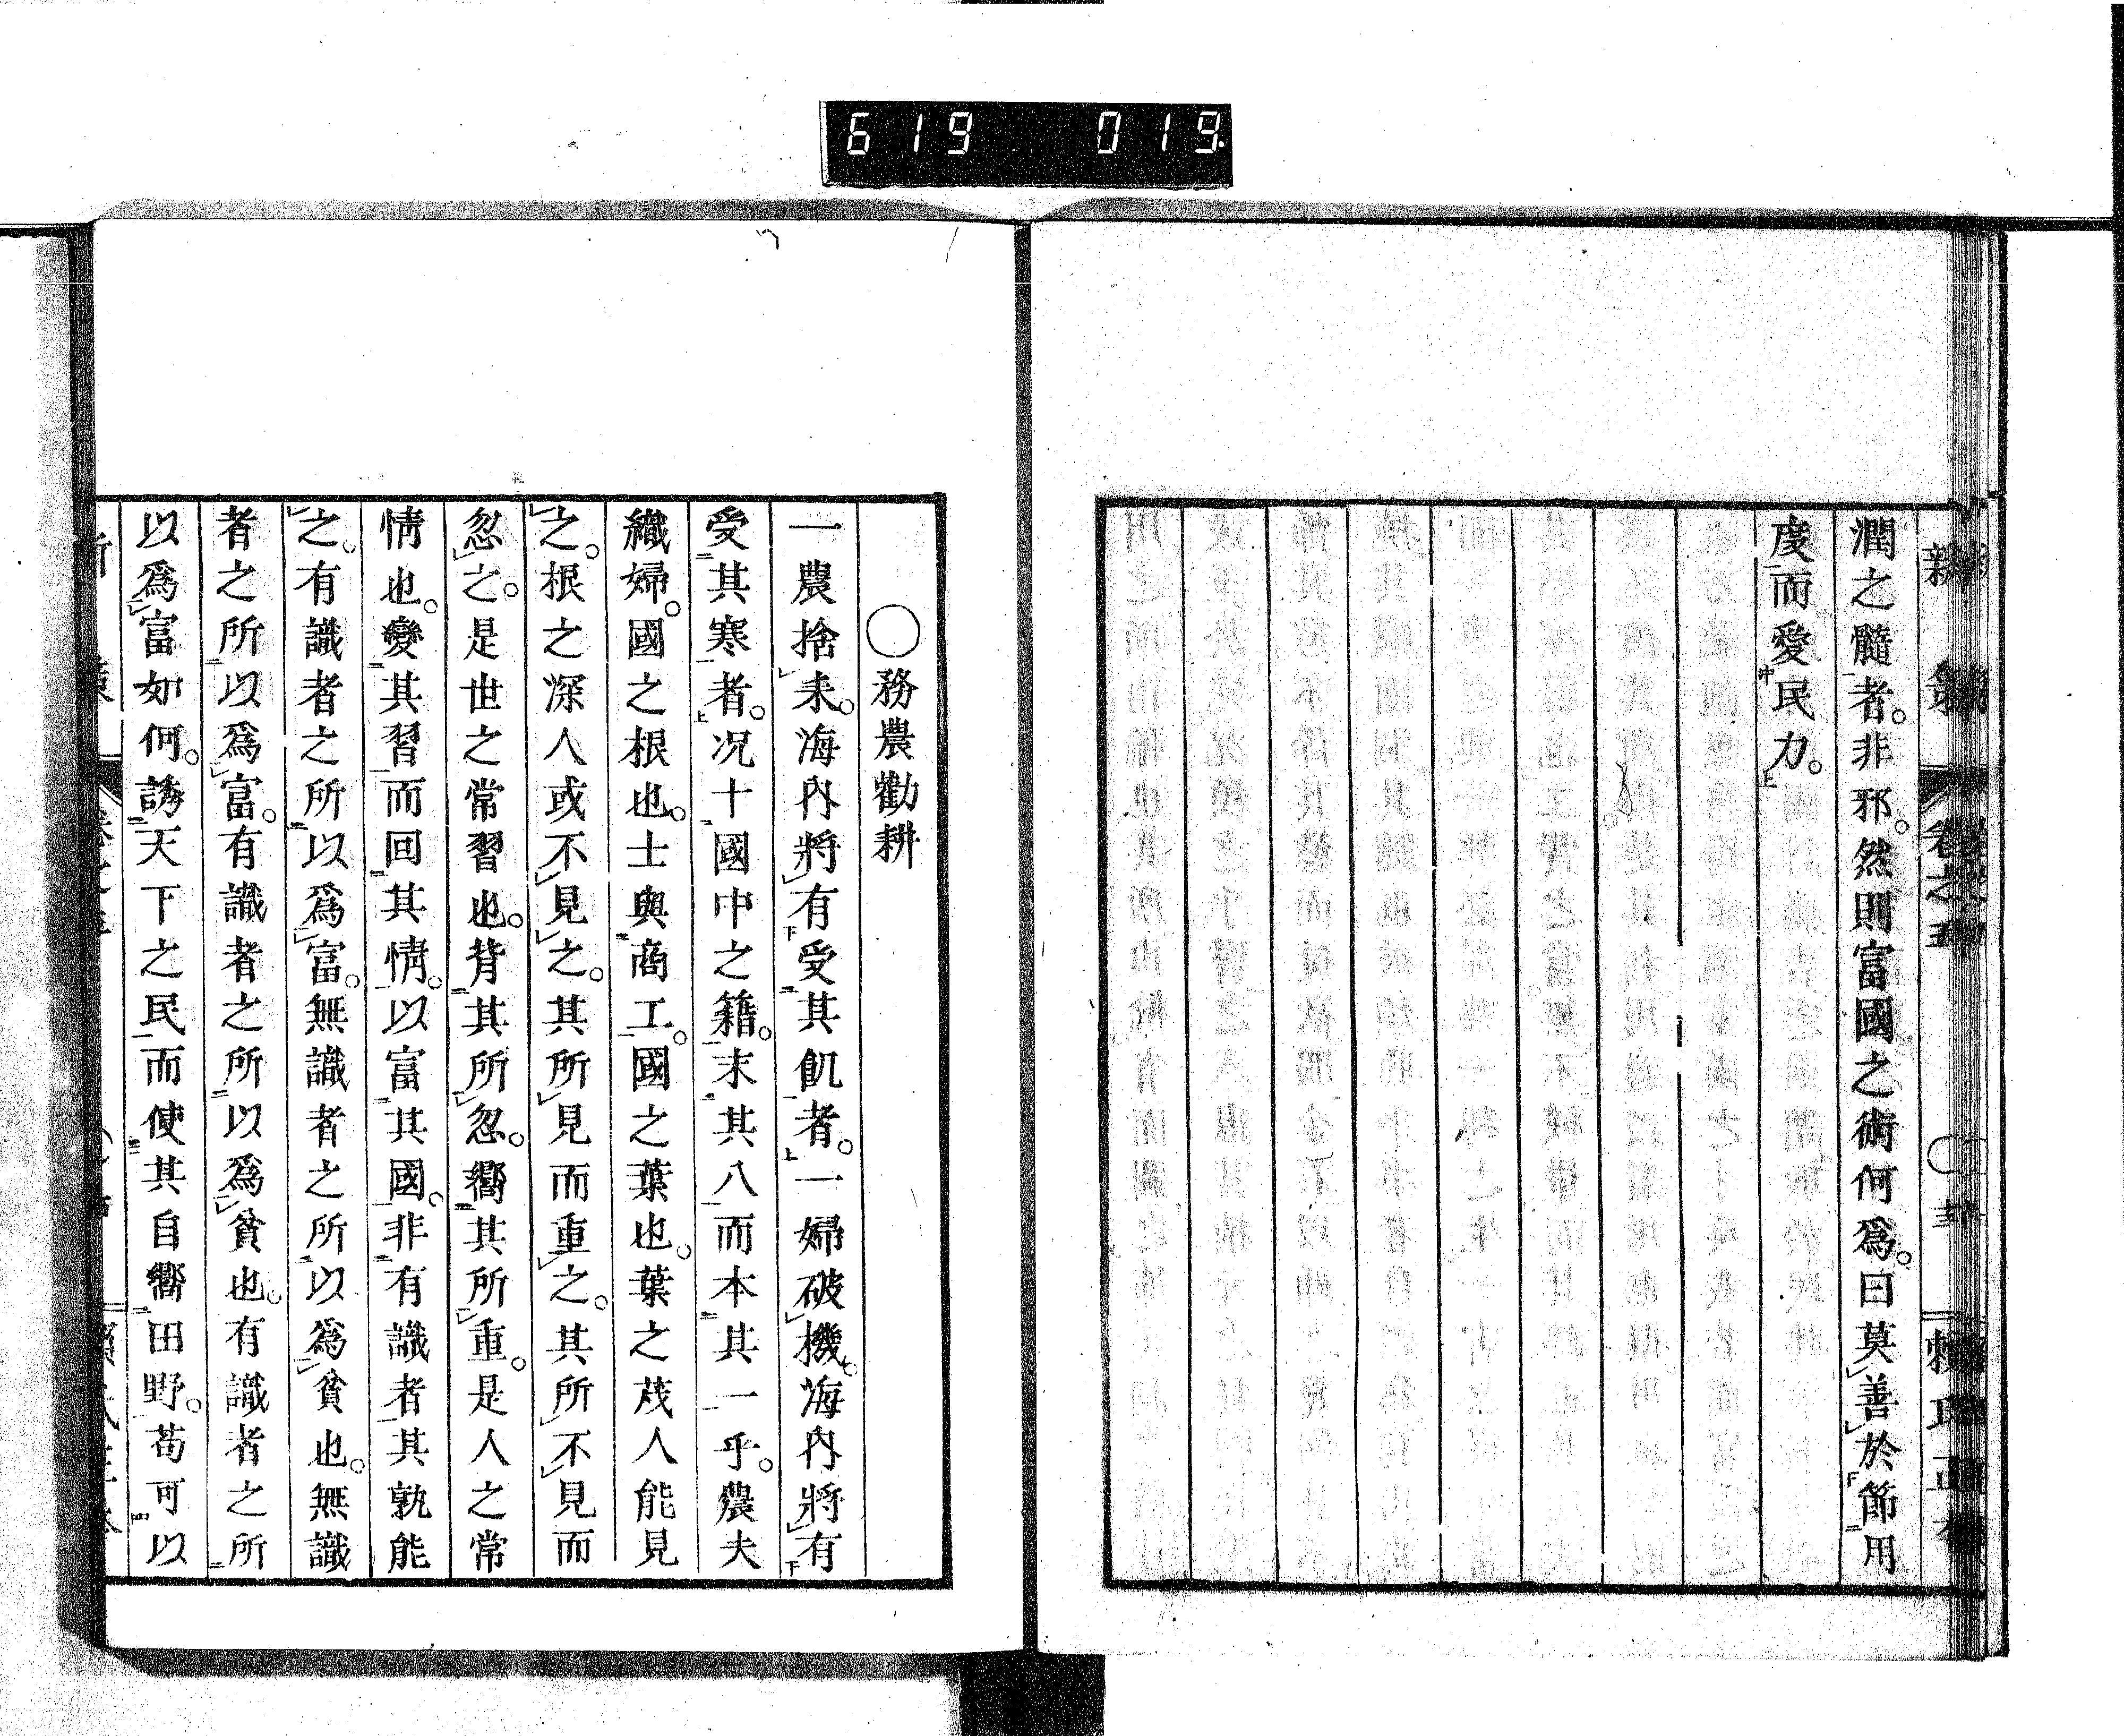 619 019.
新策
卷之五
賴氏正本
潤之髓者。非邪。然則富國之術何爲。曰莫善於節用
度而愛民力。
○務農勸耕
一農捨耒。海內將有受其飢者。一婦破機。海內將有
受其寒者。况十國中之籍。末其八而本其一乎。農夫
織婦。國之根也。士與商工。國之葉也。葉之茂人能見
之。根之深人或不見之。其所見而重之。其所不見而
忽之。是世之常習也。背其所忽。嚮其所重。是人之常
情也。變其習而回其情。以富其國。非有識者其孰能
之。有識者之所以爲富。無識者之所以爲貧也。無識
者之所以爲富。有識者之所以爲貧也。有識者之所
以爲富如何。誘天下之民而使其自嚮田野。苟可以